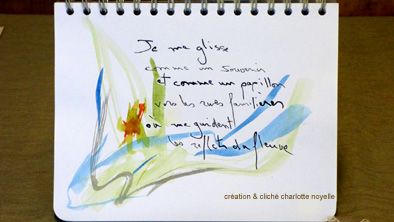 Je me glisse
comme un souvenir
et comme un papillon
vers les rives familières
où me guident
les reflets du fleuve
création & cliché charlotte noyelle